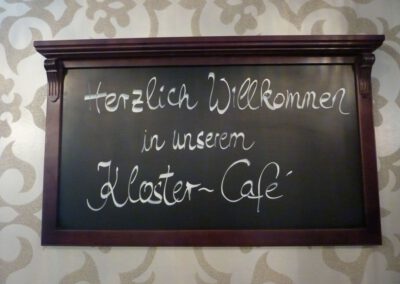 Herzlich Willkommen
in unserem
Kloster~Café